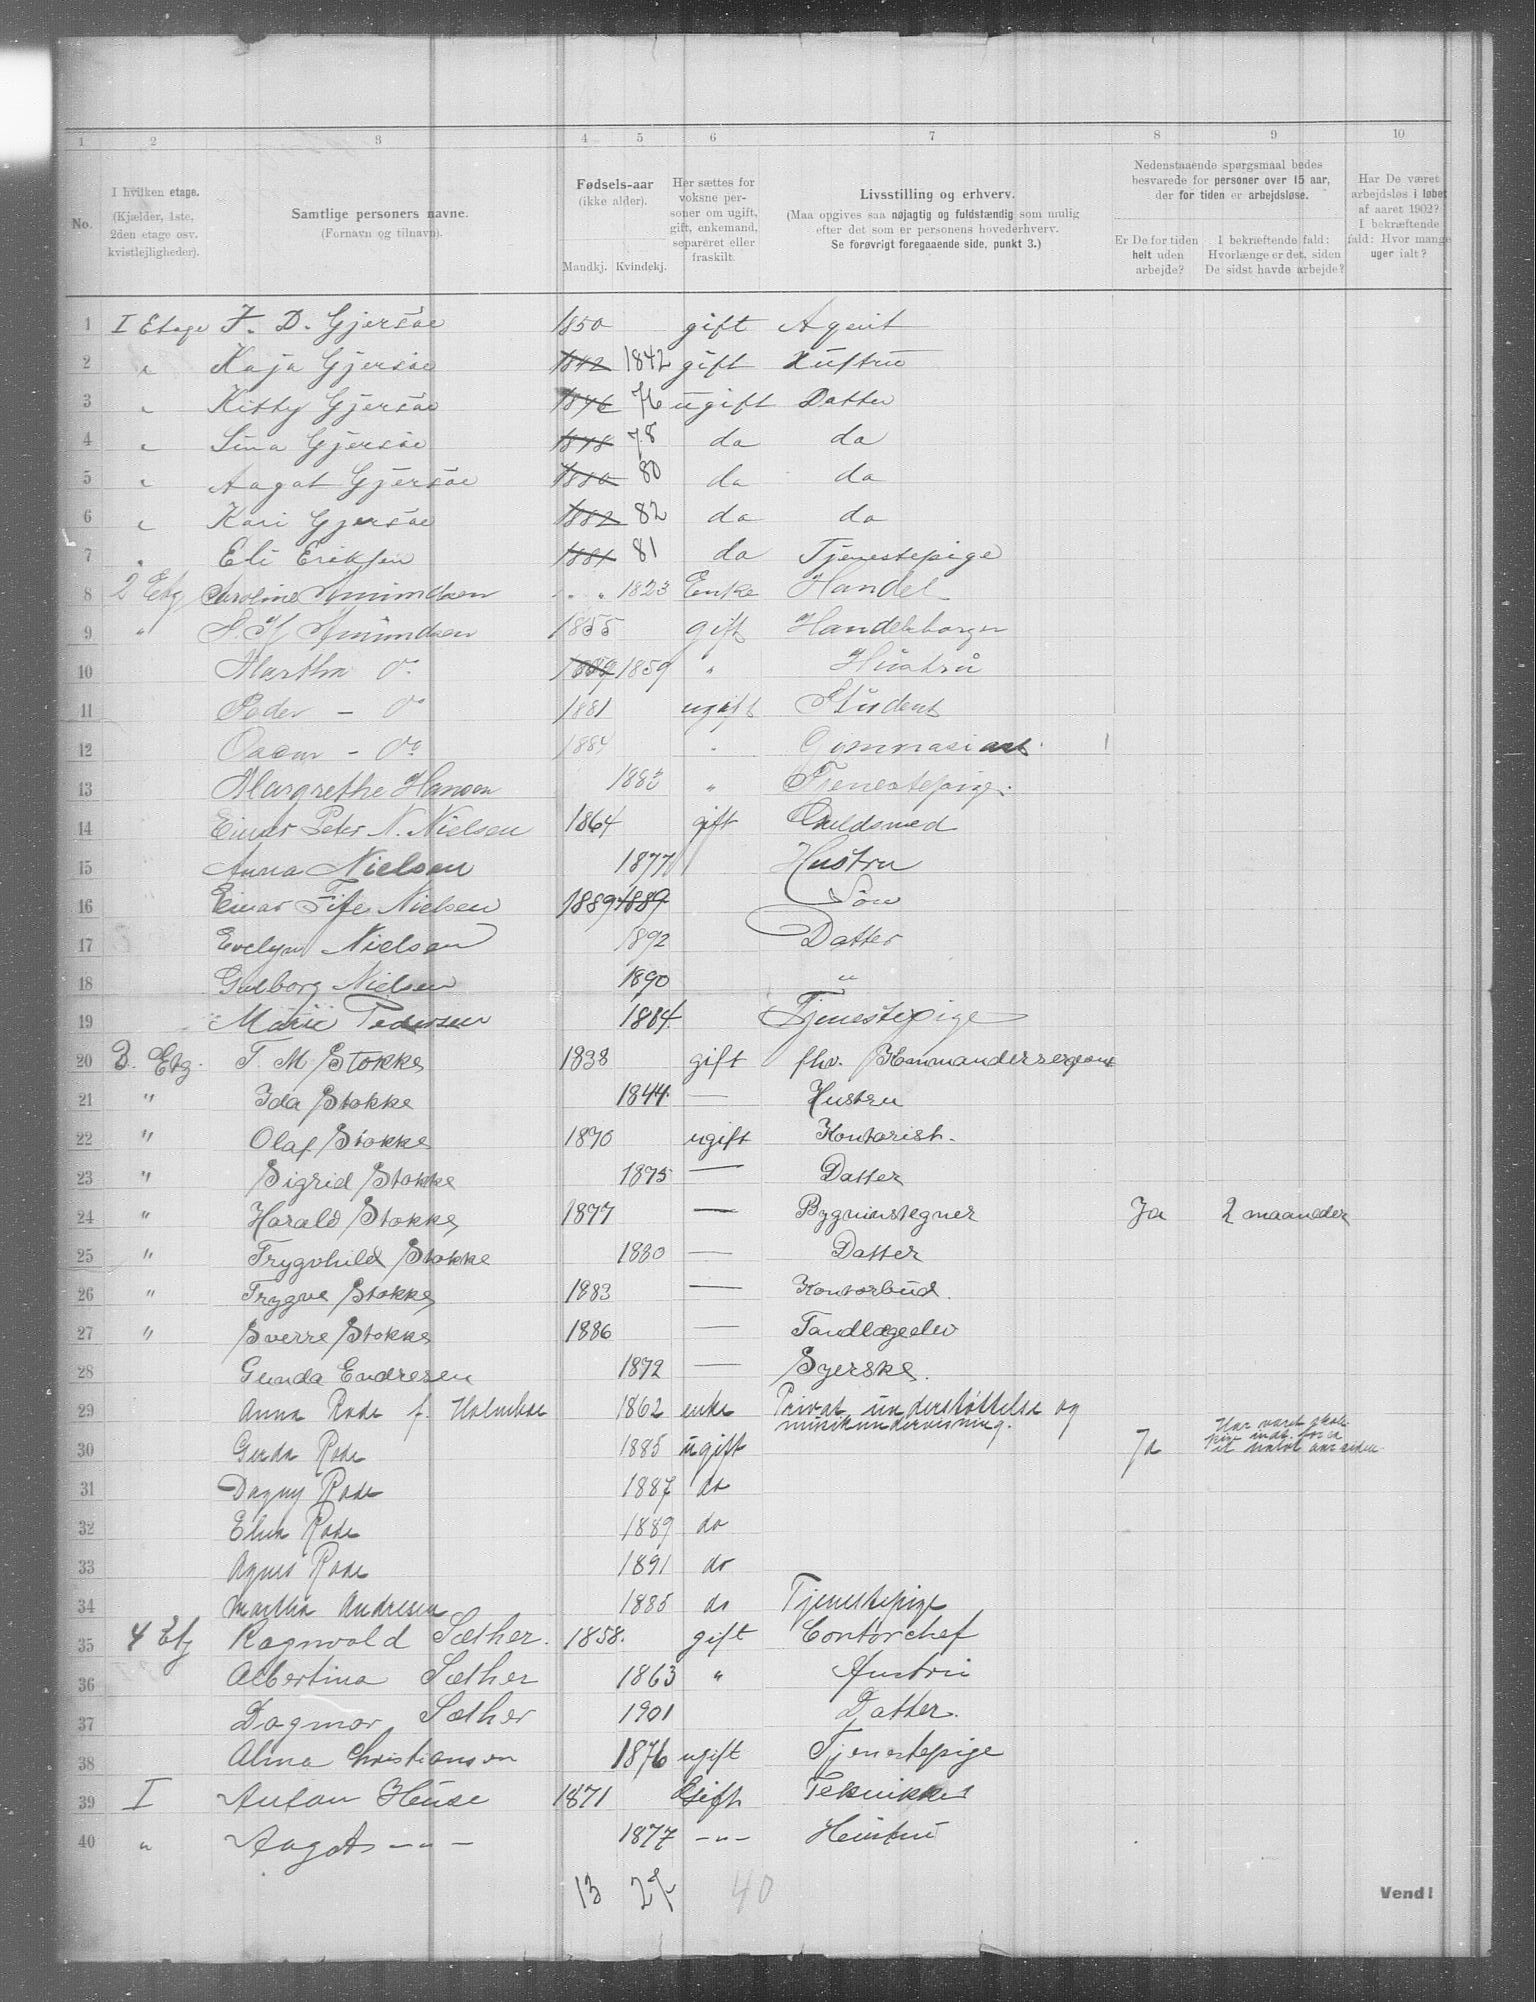 1 2 3 4 5 6 7 8 9 10
No.
I hvilken etage.
(Kjælder, 1ste,
2den etage osv.
kvistlejligheder).
Samtlige personers navne.
(Fornavn og tilnavn).
Fødsels-aar
(ikke alder).
Mandkj. Kvindekj.
Her sættes for
voksne per-
soner om ugift,
gift, enkemand,
separeret eller
fraskilt.
Livsstilling og erhverv.
(Maa opgives saa nøjagtig og fuldstændig som mulig
efter det som er personens hovederhverv.
Se forøvrigt foregaaende side, punkt 3.)
Nedenstaaende spørgsmaal bedes
besvarede for personer over 15 aar,
der for tiden er arbejdsløse.
Er De for tiden
helt uden
arbejde?
I bekræftende fald:
Hvorlænge er det, siden
De sidst havde arbejde?
Har De været
arbejdsløs i løbet
af aaret 1902?
I bekræftende
fald: Hvor mange
uger ialt?
1 I Etage F. D. Gjersöe 1850 gift Agent
2 " Kaja Gjersöe 1842 1842 gift Hustru
3 " Kitty Gjersöe 1876 76 ugift Datter
4 " Lina Gjersöe 1878 78 do do
5 " Aagot Gjersöe 1880 80 do do
6 " Kari Gjersöe 1882 82 do do
7 " Eli Eriksen 1881 81 do Tjenestepige
8 2 Etg Caroline Amundsen " " 1823 Enke Handel
9 " Amundsen 1855 gift Handelsborger
10 Martha do 1859 1859 " Hustru
11 Peder - do 1881 ugift Student
12 Oscar - do 1884 " Gimnasiast
13 Margrethe Hansen 1883 " Tjenestepige.
14 Einar Peter N. Nielsen 1864 gift Guldsmed
15 Anna Nielsen 1877 Hustru
16 Einar Fife Nielsen 1889 1889 Sön
17 Evelyn Nielsen 1892 Datter
18 Gulborg Nielsen 1890 "
19 Marie Pedersen 1884 Tjenestepige
20 3. Etg. T. M Stokke 1838 gift fhv. Kommandersergeant
21 " Ida Stokke 1844 — Hustru
22 " Olaf Stokke 1870 ugift Kontorist.
23 " Sigrid Stokke 1875 — Datter
24 " Harald Stokke 1877 — Bygninstegner Ja 2 maaneder
25 " Trygvhild Stokke 1880 — Datter
26 " Trygve Stokke 1883 — Kontorbud.
27 " Sverre Stokke 1886 — Tandlægeelev
28 Gunda Endresen 1872 — Syerske.
29 Anna Rode f. Holmboe 1862 enke Privat understøttelse og
musikundervisning.
30 Gerda Rode 1885 ugift Ja Har været skole
pige indt. for ca
et halvt aar siden
31 Dagny Rode 1887 do
32 Elna Rode 1889 do
33 Agnes Rode 1891 do
34 Martha Andresen 1885 do Tjenestepige
35 4 Etg Ragnvald Sæther. 1858. gift Contorchef
36 Albertina Sæther 1863 " Hustru
37 Dagmar Sæther 1901 Datter.
38 Alma Christiansen 1876 ugift Tjenestepige
39 I Anton Heuse 1871 Gift Tekniker
40 " Aagot - " - 1877 - " - Hustru
13 27 40
Vend!